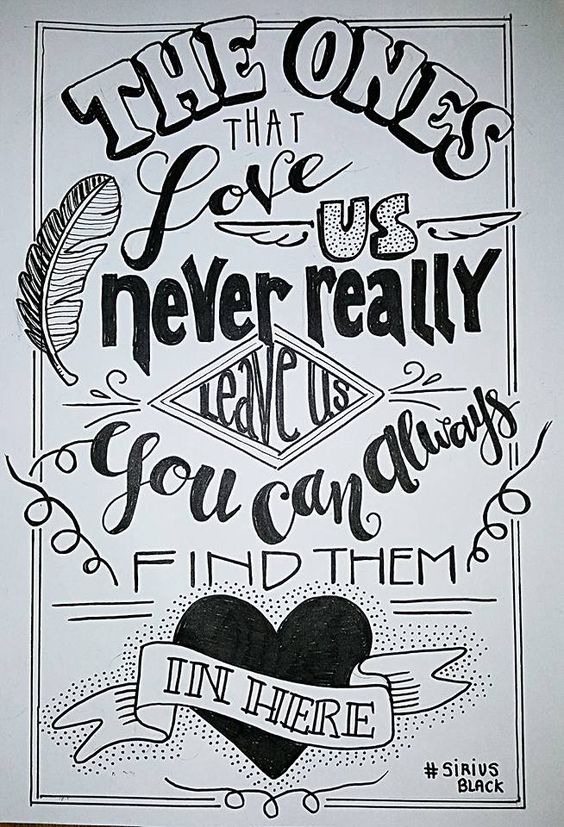 THE ONES
THAT
Love
US
never really
Leave us
You can always
FIND THEM
IN HERE
#SiRiUS
BLACK